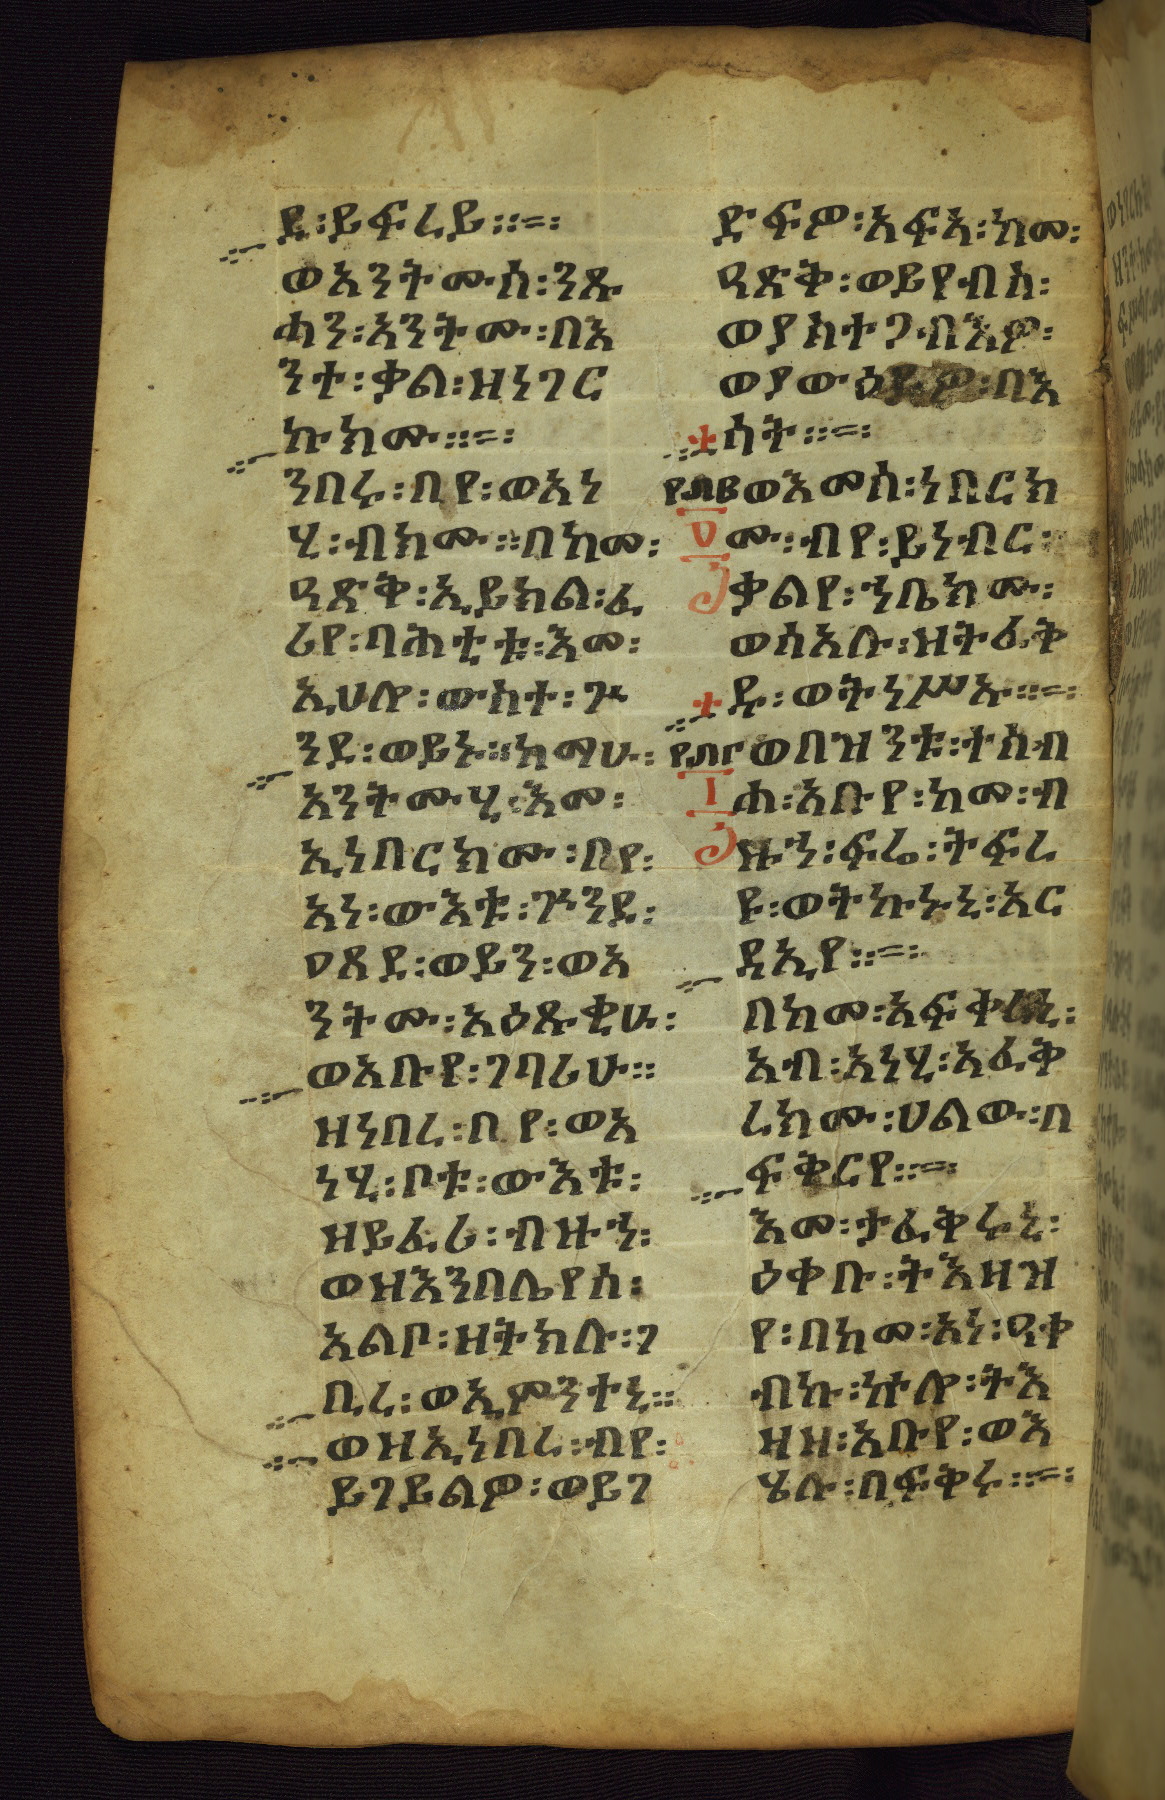 ደ፡ይፍረይ፡፡=፡
ወአንትሙሰ፡ንጹ
ሓን፡አንትሙ፡በእ
ንተ፡ቃል፡ዘነገር
ኩክሙ፡፡=፡
ንበሩ፡ብየ፡ወአነ
ሂ፡ብክሙ፡፡በከመ፡
ዓጽቅ፡ኢይክል፡ፈ
ሪየ፡ባሕቲቱ፡እመ፡
ኢሀሎ፡ውስተ፡ጕ
ንደ፡ወይኑ፡፡ከማሁ፡
አንትሙሂ፡እመ፡
ኢነበርክሙ፡ብየ፡
አነ፡ውእቱ፡ጕንደ፡
ዐጸደ፡ወይን፡ወአ
ንትሙ፡አዕጹቂሁ፡
ወአቡየ፡ገባሪሁ፡፡
ዘነበረ፡ብየ፡ወአ
ነሂ፡ቦቱ፡ውእቱ፡
ዘይፈሪ፡ብዙኀ፡
ወዝእንበሌየሰ፡
አልቦ፡ዘትክሉ፡ገ
ቢረ፡ወኢምንተኒ፡፡
ወዝኢነበረ፡ብየ፡
ይገይልዎ፡ወይገ
ድፍዎ፡አፍአ፡ከመ፡
ዓጽቅ፡ወይየብስ፡
ወያስተጋብእዎ፡
ወያውዕይዎ፡በእ
ሳት፡፡=፡
የ፴፪ወእመሰ፡ነበርክ
፲ሙ፡ብየ፡ይነብር፡
ቃልየ፡ኀቤክሙ፡
ወሰአሉ፡ዘትፈቅ
ዱ፡ወትነሥኡ፡፡=፡
ወበዝንቱ፡ተሰብ
ሐ፡አቡየ፡ከመ፡ብ
ዙኀ፡ፍሬ፡ትፍረ
ዩ፡ወትኩኑኒ፡አር
ዳኢየ፡፡=፡
በከመ፡አፍቀረኒ፡
አብ፡አነሂ፡አፈቅ
ረክሙ፡ሀልው፡በ
ፍቅርየ፡፡=፡
እመ፡ታፈቅሩኒ፡
ዕቀቡ፡ትእዛዝ
የ፡በከመ፡አነ፡ዓቀ
ብኩ፡ኵሎ፡ትእ
ዛዘ፡አቡየ፡ወእ
ሄሉ፡በፍቅሩ፡፡=፡